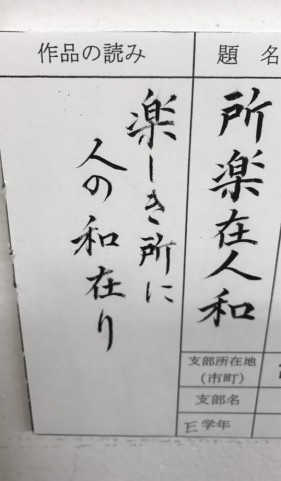 題名
所楽在人和
作品の読み
楽しき所に
人の和在り
支部所在地
(市町)
支部名
E学年